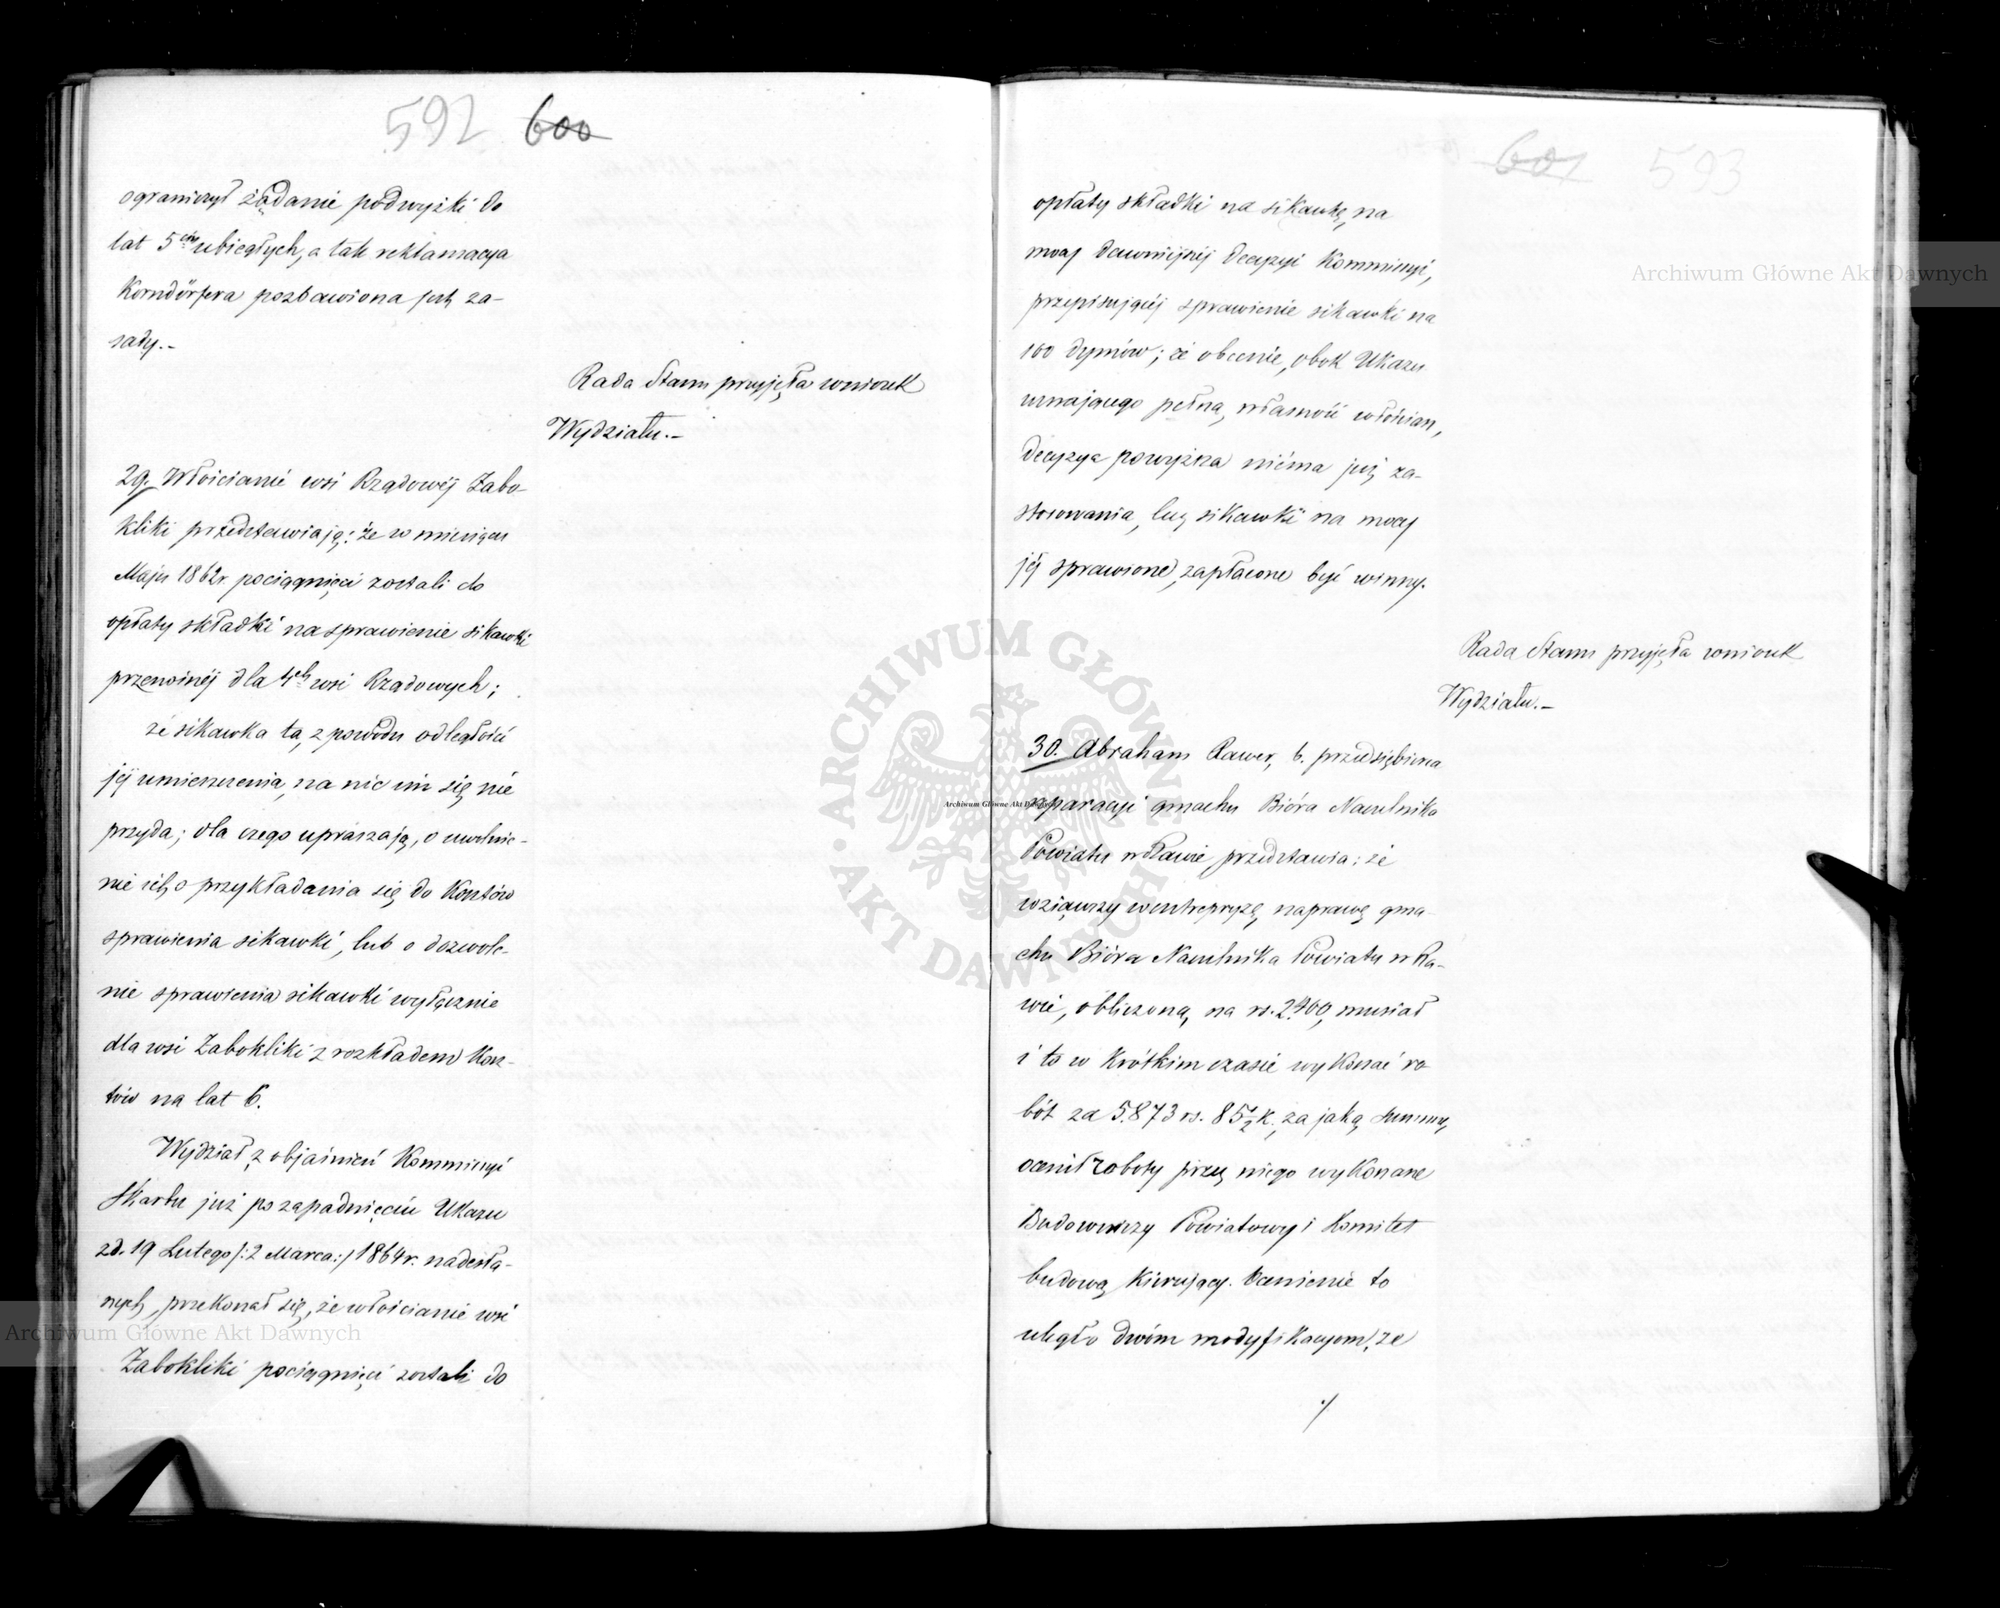 592 600
ograniczył żądanie podwyżki do
lat 5ciu ubiegłych, a tak reklamacya
Korndörfera pozbawiona jest za-
sady.-
Rada Stanu przyjęła wniosek
Wydziału.-
29. Włościanie wsi Rządowéj Zabo-
kliki przedstawiają: że w miesiącu
Maju 1862r pociągnięci zostali do
opłaty składki na sprawienie sikawki
przenośnéj dla 4ch wsi Rządowych;
że sikawka ta, z powodu odległości
jéj umieszczenia, na nic im się nie
przyda; dla czego upraszają, o uwolnie-
nie ich, o przykładania się do Kosztów
sprawienia sikawki, lub o dozwole-
nie sprawienia sikawki wyłącznie
dla wsi Zabokliki z rozkładem Kosz-
tów na lat 6.
Wydział z objaśnień Kommissyi
Skarbu już po zapadnięciu Ukazu
zd. 19 Lutego /:2 Marca:/ 1864r. nadesła-
nych, przekonał się, że włościanie wsi
Zabokliki pociągnięci zostali do
601 593
opłaty składki na sikawkę, na
mocy dawniejszéj decyzyi Kommissyi,
przepisującéj sprawienie sikawki na
100 dymów; że obecnie, obok Ukazu
uznającego pełną własność włościan,
decyzya powyższa niéma już za-
stosowania, lecz sikawki na mocy
jéj sprawione, zapłacone być winny.
Rada Stanu przyjęła wniosek
Wydziału.-
30. Abraham Rawer, b. przedsiębiorca
reparacyi gmachu Bióra Naczelnika
Powiatu w Rawie przedstawia: że
wziąwszy w entrepryzę naprawę gma-
chu Bióra Naczelnika Powiatu w Ra-
wie, obliczoną na rs. 2400, musiał
i to w Krótkim czasie wykonać ro
bót za 5.873 rs. 85½ k., za jaką summę,
ocenił roboty przez niego wykonane
Budowniczy Powiatowy i Komitet
budową Kierujący. Ocenienie to
uległo dwóm modyfikacyom, że
./
Archiwum Główne Akt Dawnych
Archiwum Główne Akt Dawnych
Archiwum Główne Akt Dawnych
ARCHIWUM GŁÓWNE • AKT DAWNYCH •